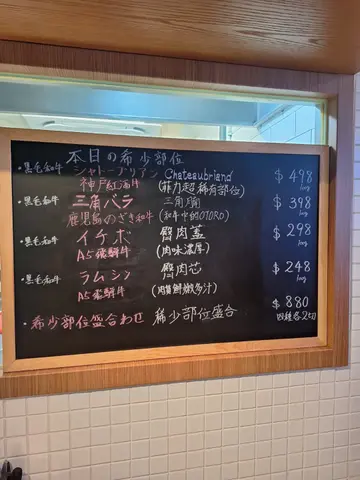 本日の希少部位
・黒毛和牛 シャトーブリアン Chateaubriand $498
神戸紅酒牛 (菲力超稀有部位)
・黒毛和牛 三角バラ 三角腩 $398
鹿児島のざき和牛 (和牛中的OTORO)
・黒毛和牛 イチボ 臀肉蓋 $298
A5飛騨牛 (肉味濃厚)
・黒毛和牛 ラムシン 臀肉芯 $248
A5飛騨牛 (肉質鮮嫩多汁)
・希少部位盛合わせ 稀少部位盛合 $880
四種各2切